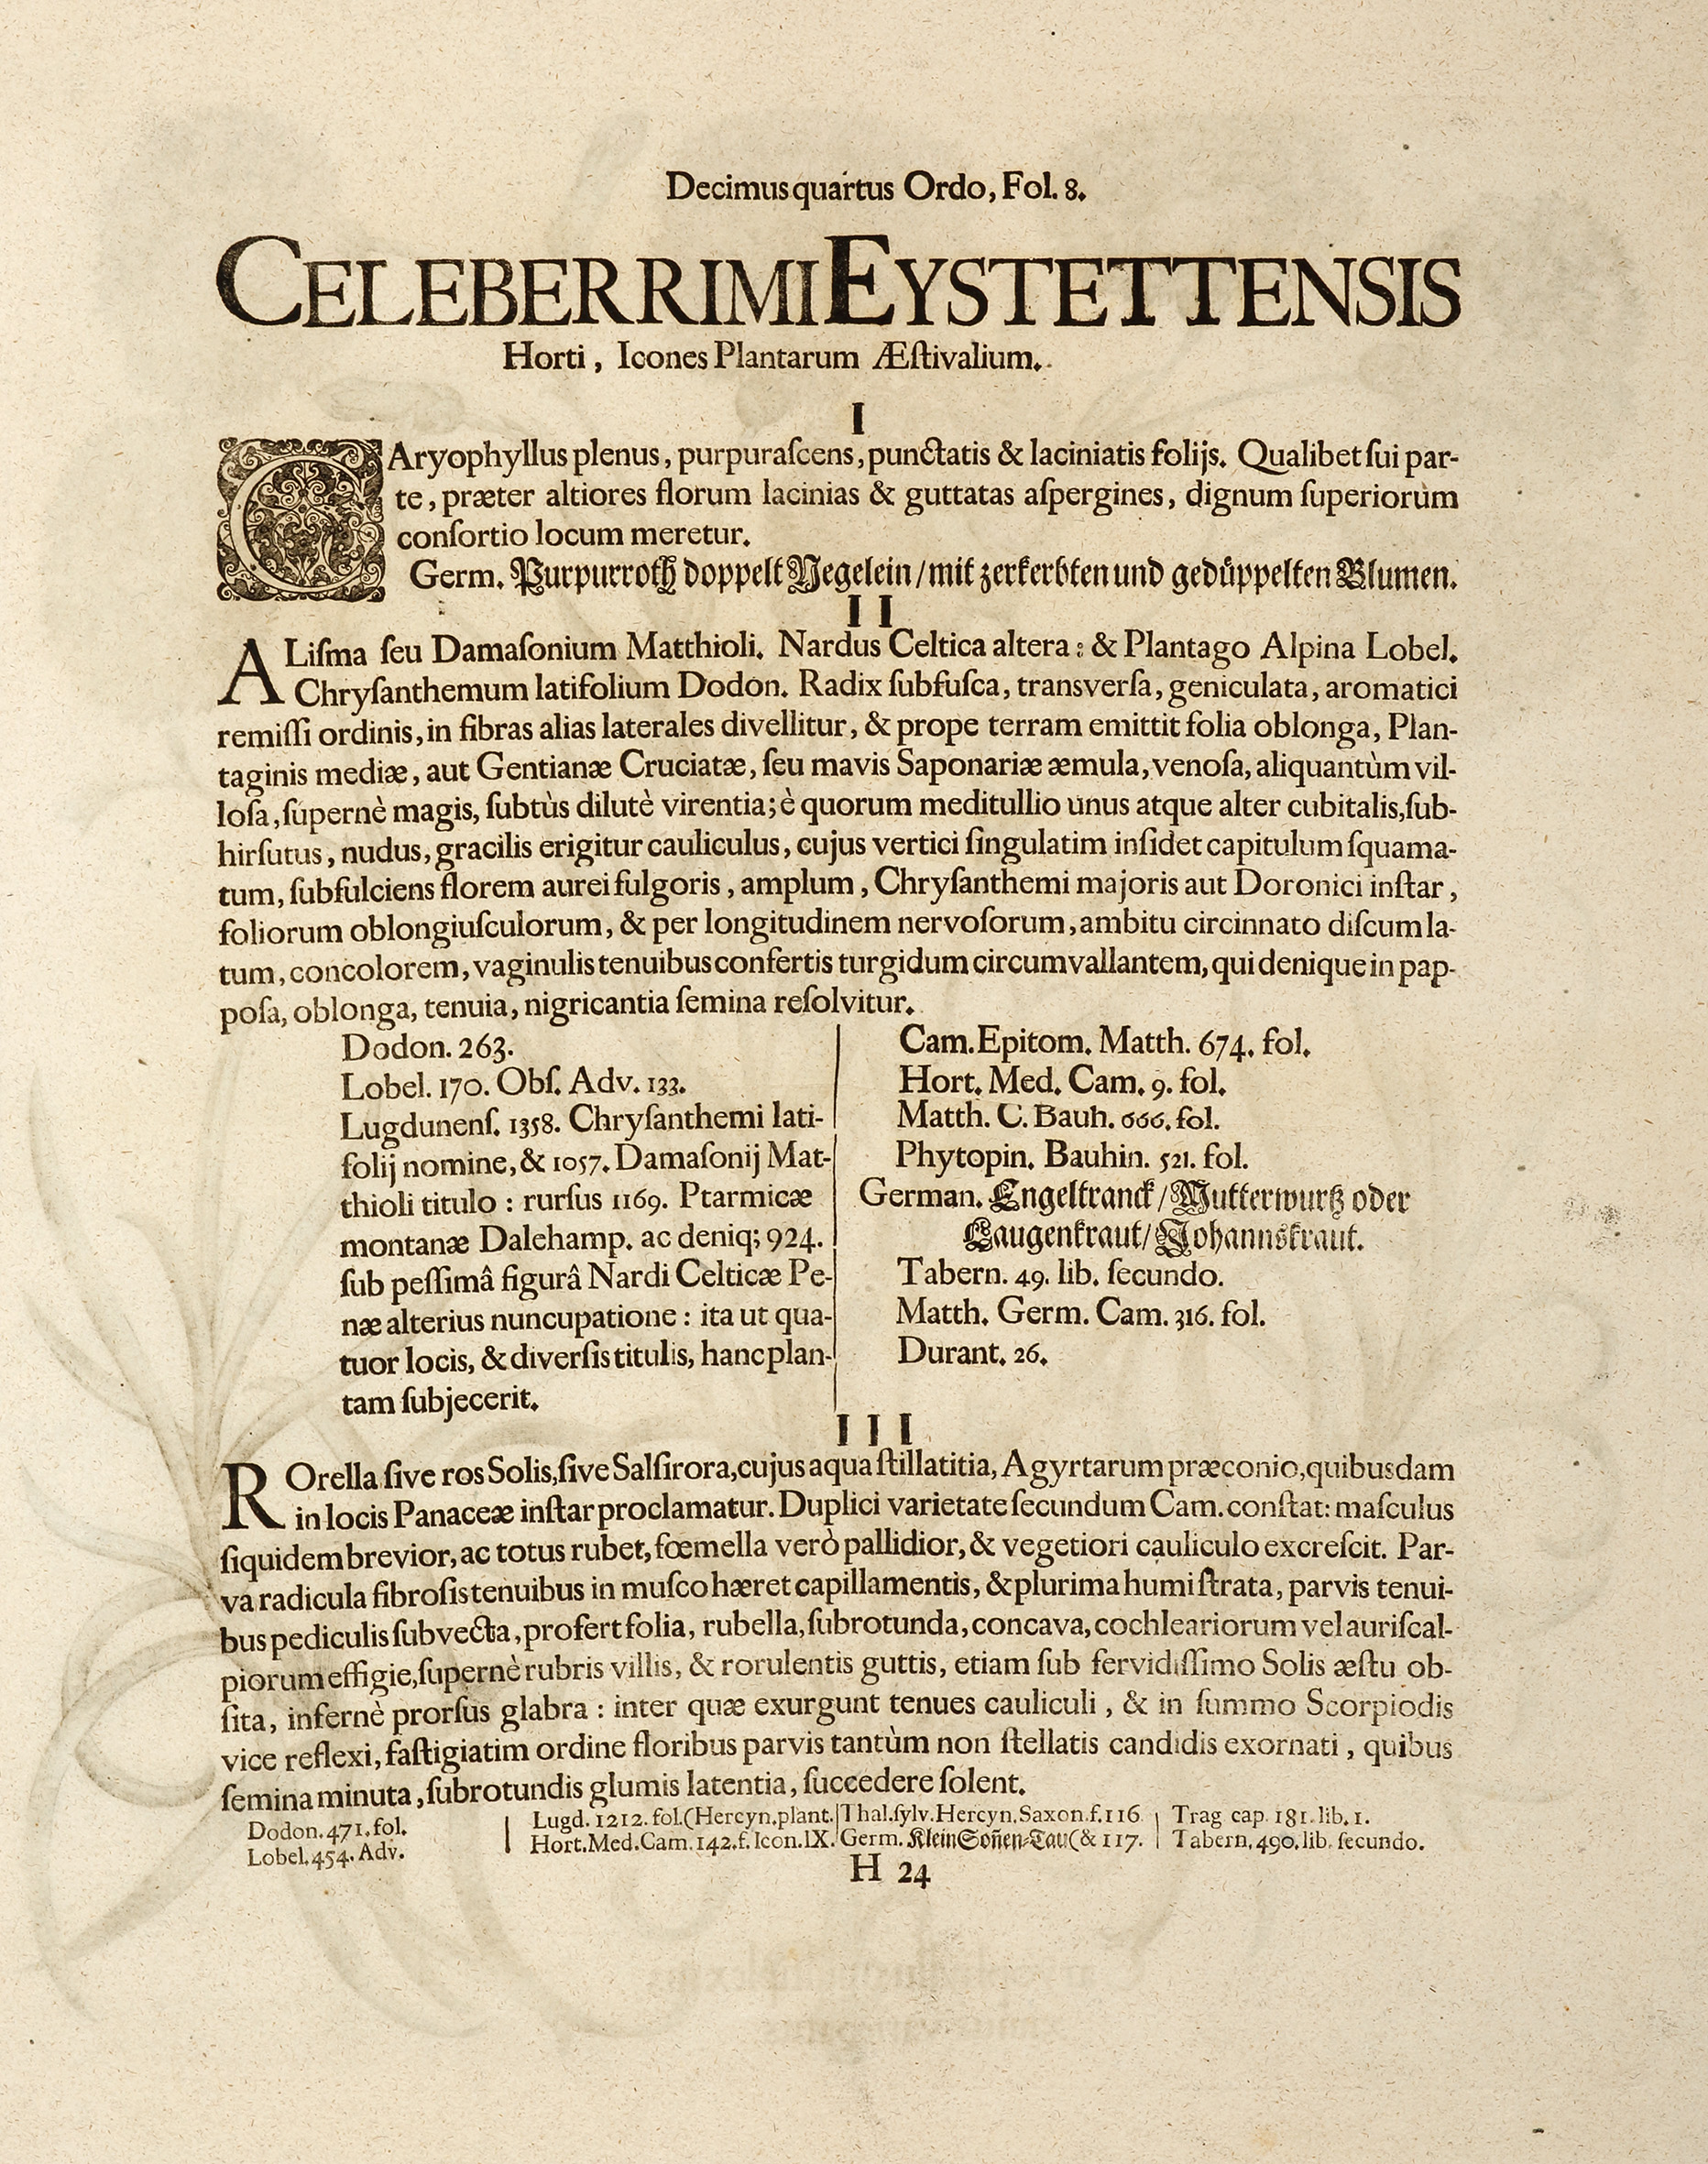 Decimusquartus Ordo, Fol. 8.
CELEBERRIMI EYSTETTENSIS
Horti, Icones Plantarum Æſtivalium.
I
CAryophyllus plenus, purpuraſcens, punctatis & laciniatis folijs. Qualibet ſui par-
te, præter altiores florum lacinias & guttatas aſpergines, dignum ſuperiorum
conſortio locum meretur.
Germ. Purpurroth doppelt Negelein/mit zerkerbten und gedüppelten Blumen.
II
ALiſma ſeu Damaſonium Matthioli. Nardus Celtica altera: & Plantago Alpina Lobel.
Chryſanthemum latifolium Dodon. Radix ſubfuſca, transverſa, geniculata, aromatici
remiſſi ordinis, in fibras alias laterales divellitur, & prope terram emittit folia oblonga, Plan-
taginis mediæ, aut Gentianæ Cruciatæ, ſeu mavis Saponariæ æmula, venoſa, aliquantùm vil-
loſa, ſupernè magis, ſubtùs dilutè virentia; è quorum meditullio unus atque alter cubitalis, ſub-
hirſutus, nudus, gracilis erigitur cauliculus, cujus vertici ſingulatim inſidet capitulum ſquama-
tum, ſubfulciens florem aurei fulgoris, amplum, Chryſanthemi majoris aut Doronici inſtar,
foliorum oblongiuſculorum, & per longitudinem nervoſorum, ambitu circinnato diſcum la-
tum, concolorem, vaginulis tenuibus confertis turgidum circumvallantem, qui denique in pap-
poſa, oblonga, tenuia, nigricantia ſemina reſolvitur.
Dodon. 263.
Lobel. 170. Obſ. Adv. 133.
Lugdunenſ. 1358. Chryſanthemi lati-
folij nomine, & 1057. Damaſonij Mat-
thioli titulo: rurſus 1169. Ptarmicæ
montanæ Dalehamp. ac deniq; 924.
ſub peſſimâ figurâ Nardi Celticæ Pe-
næ alterius nuncupatione: ita ut qua-
tuor locis, & diverſis titulis, hanc plan-
tam ſubjecerit.
Cam. Epitom. Matth. 674. fol.
Hort. Med. Cam. 9. fol.
Matth. C. Bauh. 666. fol.
Phytopin. Bauhin. 521. fol.
German. Engeltranck/Mutterwurtz oder
Laugenkraut/Johannskraut.
Tabern. 49. lib. ſecundo.
Matth. Germ. Cam. 316. fol.
Durant. 26.
III
ROrella ſive ros Solis, ſive Salſirora, cujus aqua ſtillatitia, Agyrtarum præconio, quibusdam
in locis Panaceæ inſtar proclamatur. Duplici varietate ſecundum Cam. conſtat: maſculus
ſiquidem brevior, ac totus rubet, fœmella verò pallidior, & vegetiori cauliculo excreſcit. Par-
va radicula fibroſis tenuibus in muſco hæret capillamentis, & plurima humi ſtrata, parvis tenui-
bus pediculis ſubvecta, profert folia, rubella, ſubrotunda, concava, cochleariorum vel auriſcal-
piorum effigie, ſupernè rubris villis, & rorulentis guttis, etiam ſub fervidiſſimo Solis æſtu ob-
ſita, infernè prorſus glabra: inter quæ exurgunt tenues cauliculi, & in ſummo Scorpiodis
vice reflexi, faſtigiatim ordine floribus parvis tantùm non ſtellatis candidis exornati, quibus
ſemina minuta, ſubrotundis glumis latentia, ſuccedere ſolent.
Dodon. 471. fol.
Lobel. 454. Adv.
Lugd. 1212. fol. (Hercyn. plant.
Hort. Med. Cam. 142. f. Icon. IX.
Thal. ſylv. Hercyn. Saxon. f. 116
Germ. Klein Soñen-Tau (& 117.
Trag cap. 181. lib. 1.
Tabern. 490. lib. ſecundo.
H 24